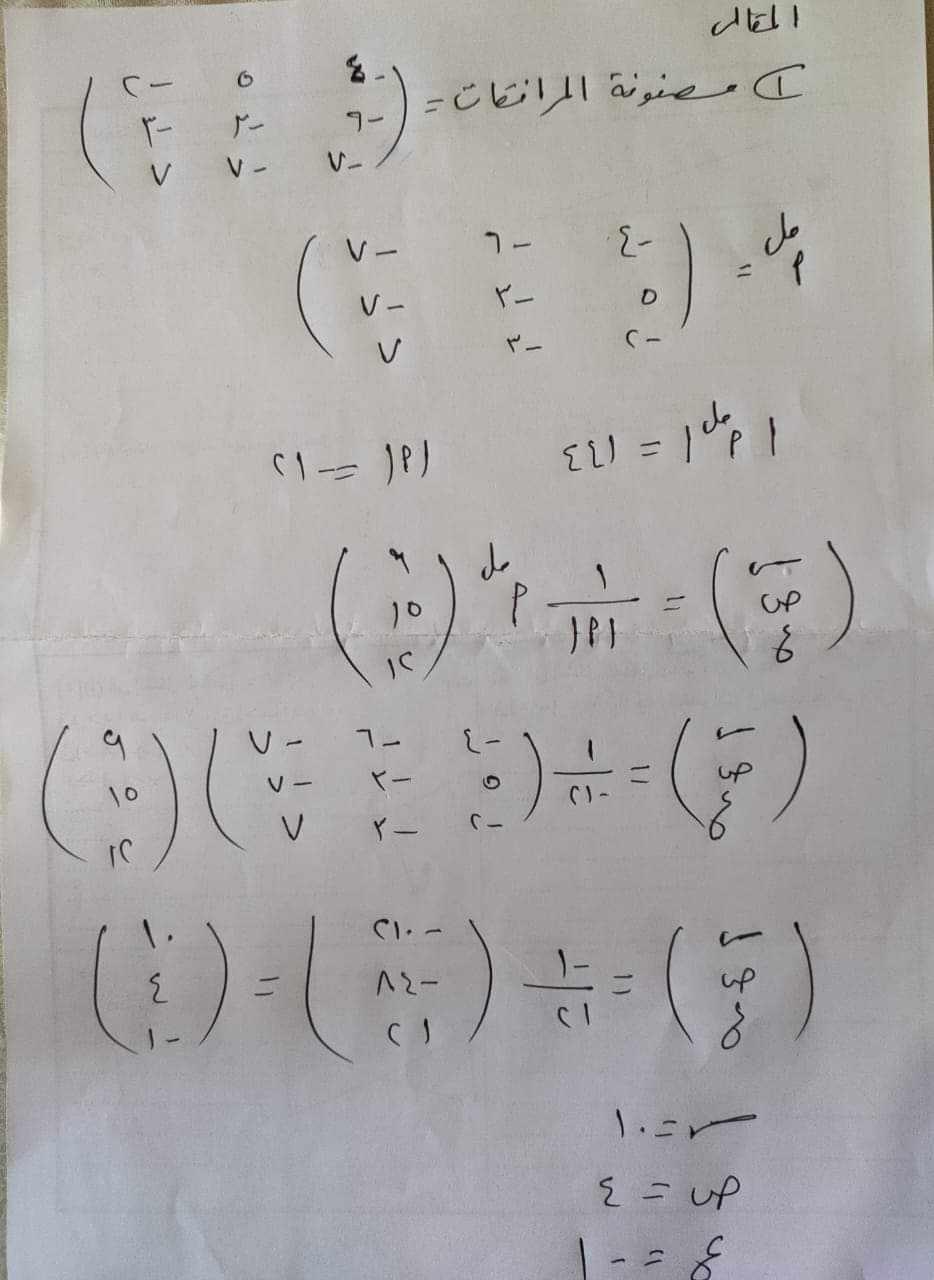 المقالى
① مصفوفة المرافقات = (-٤ ٥ -٢
-٦ -٣ -٣
-٧ -٧ ٧)
أ مل = (-٤ -٦ -٧
٥ -٣ -٧
-٢ -٣ ٧)
|أ مل| = ٤٤١ |أ| = -٢١
(س ص ع) = ١/|أ| أ مل (٩ ١٥ ١٢)
(س ص ع) = ١/-٢١ (-٤ -٦ -٧
٥ -٣ -٧
-٢ -٣ ٧) (٩ ١٥ ١٢)
(س ص ع) = -١/٢١ (-٢١٠ -٨٤ ٢١) = (١٠ ٤ -١)
س = ١٠
ص = ٤
ع = -١